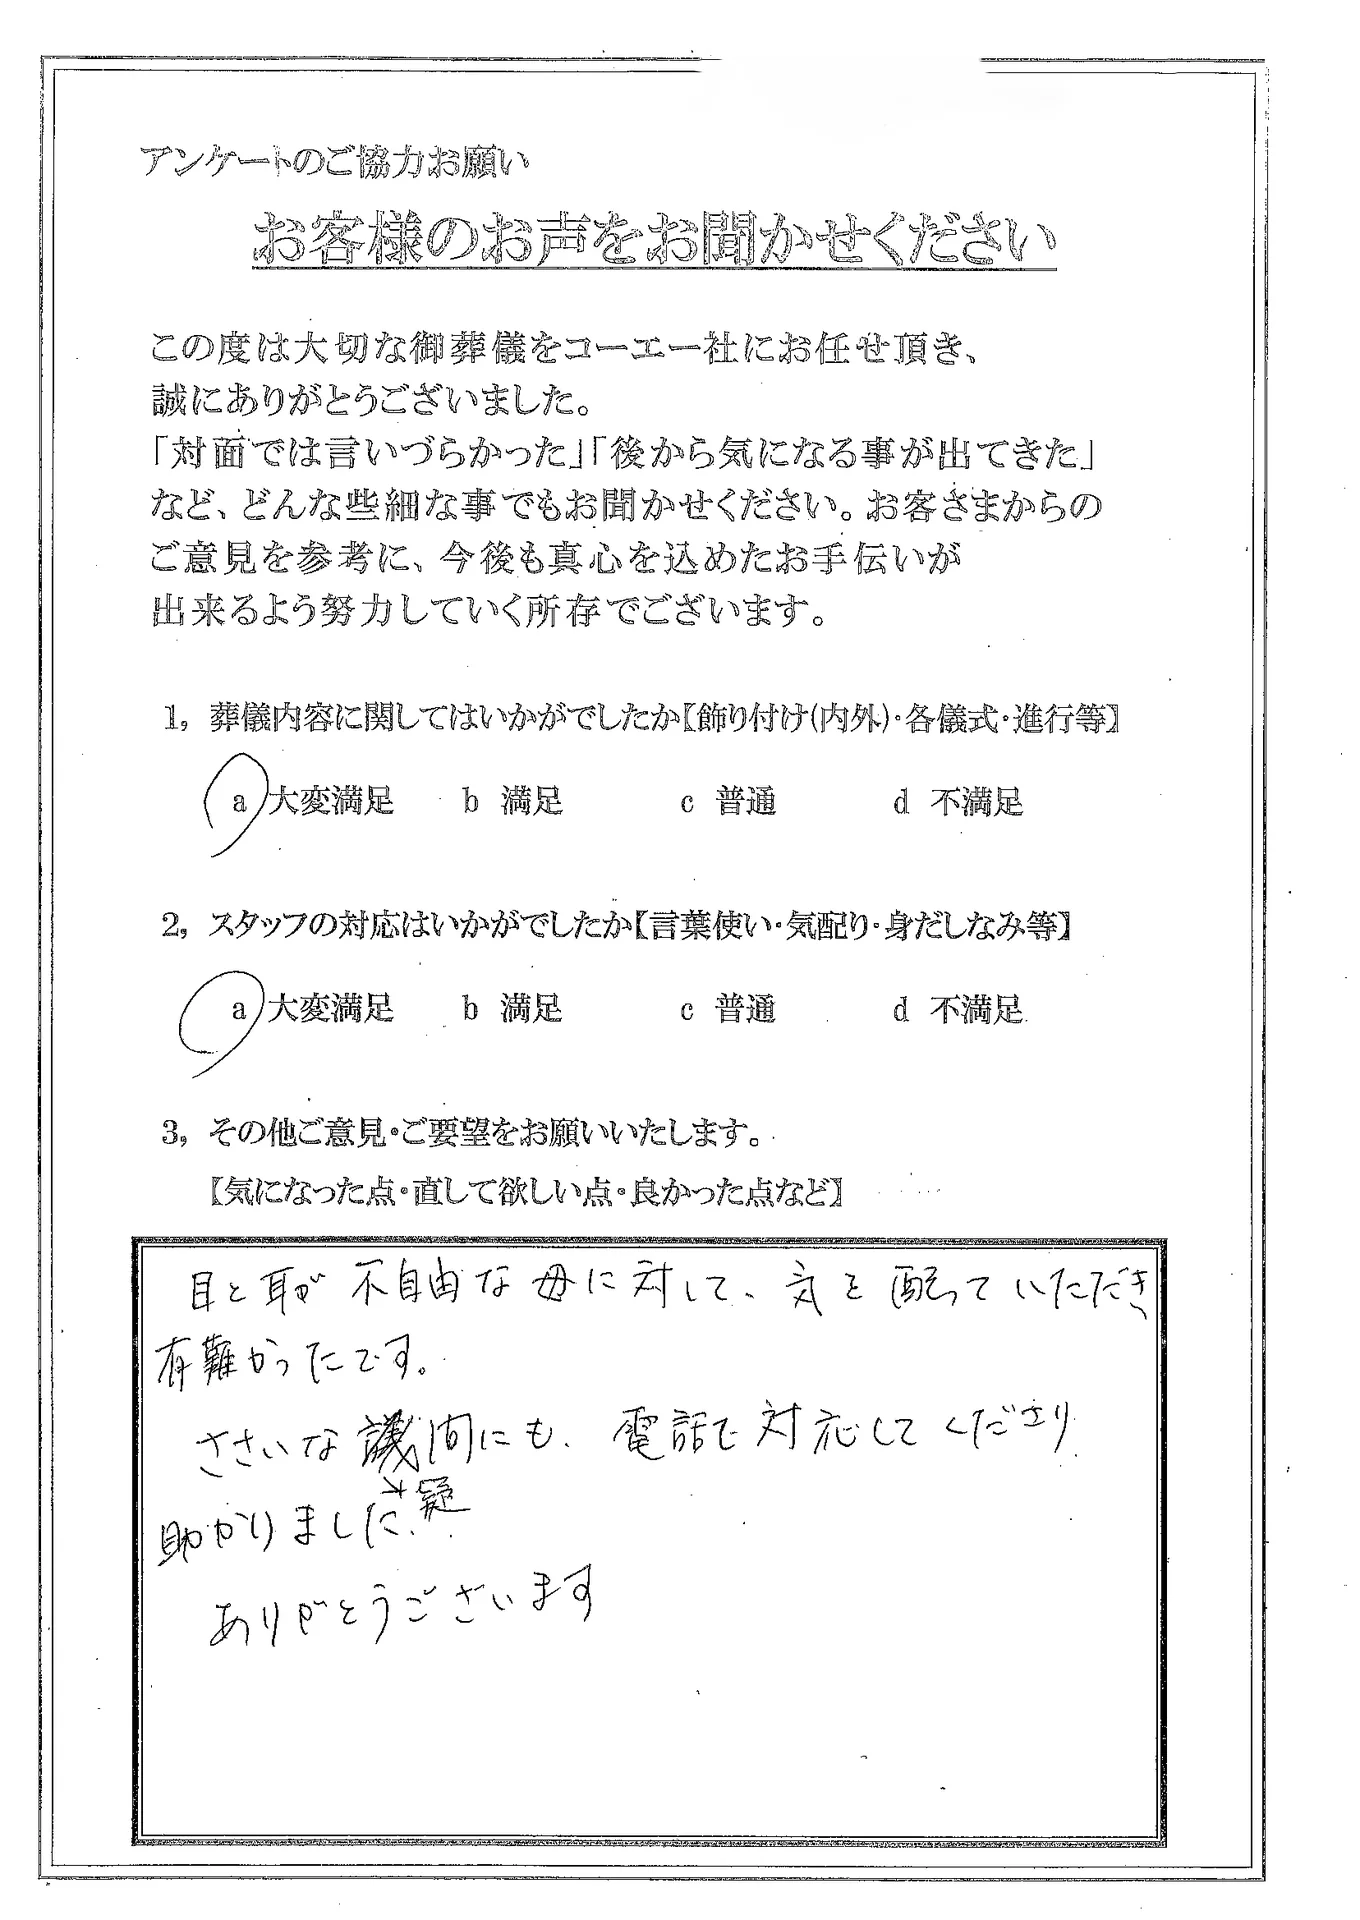 アンケートのご協力お願い
お客様のお声をお聞かせください
この度は大切な御葬儀をコーエー社にお任せ頂き、
誠にありがとうございました。
「対面では言いづらかった」「後から気になる事が出てきた」
など、どんな些細な事でもお聞かせください。お客さまからの
ご意見を参考に、今後も真心を込めたお手伝いが
出来るよう努力していく所存でございます。
1, 葬儀内容に関してはいかがでしたか【飾り付け(内外)・各儀式・進行等】
a 大変満足 b 満足 c 普通 d 不満足
2, スタッフの対応はいかがでしたか【言葉使い・気配り・身だしなみ等】
a 大変満足 b 満足 c 普通 d 不満足
3, その他ご意見・ご要望をお願いいたします。
【気になった点・直して欲しい点・良かった点など】
目と耳が不自由な母に対して、気を配っていただき
有難かったです。
ささいな疑問にも、電話で対応してくださり
助かりました。
ありがとうございます